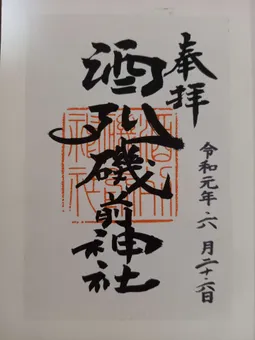 奉拝
酒列磯前神社
令和元年・六月二十六日